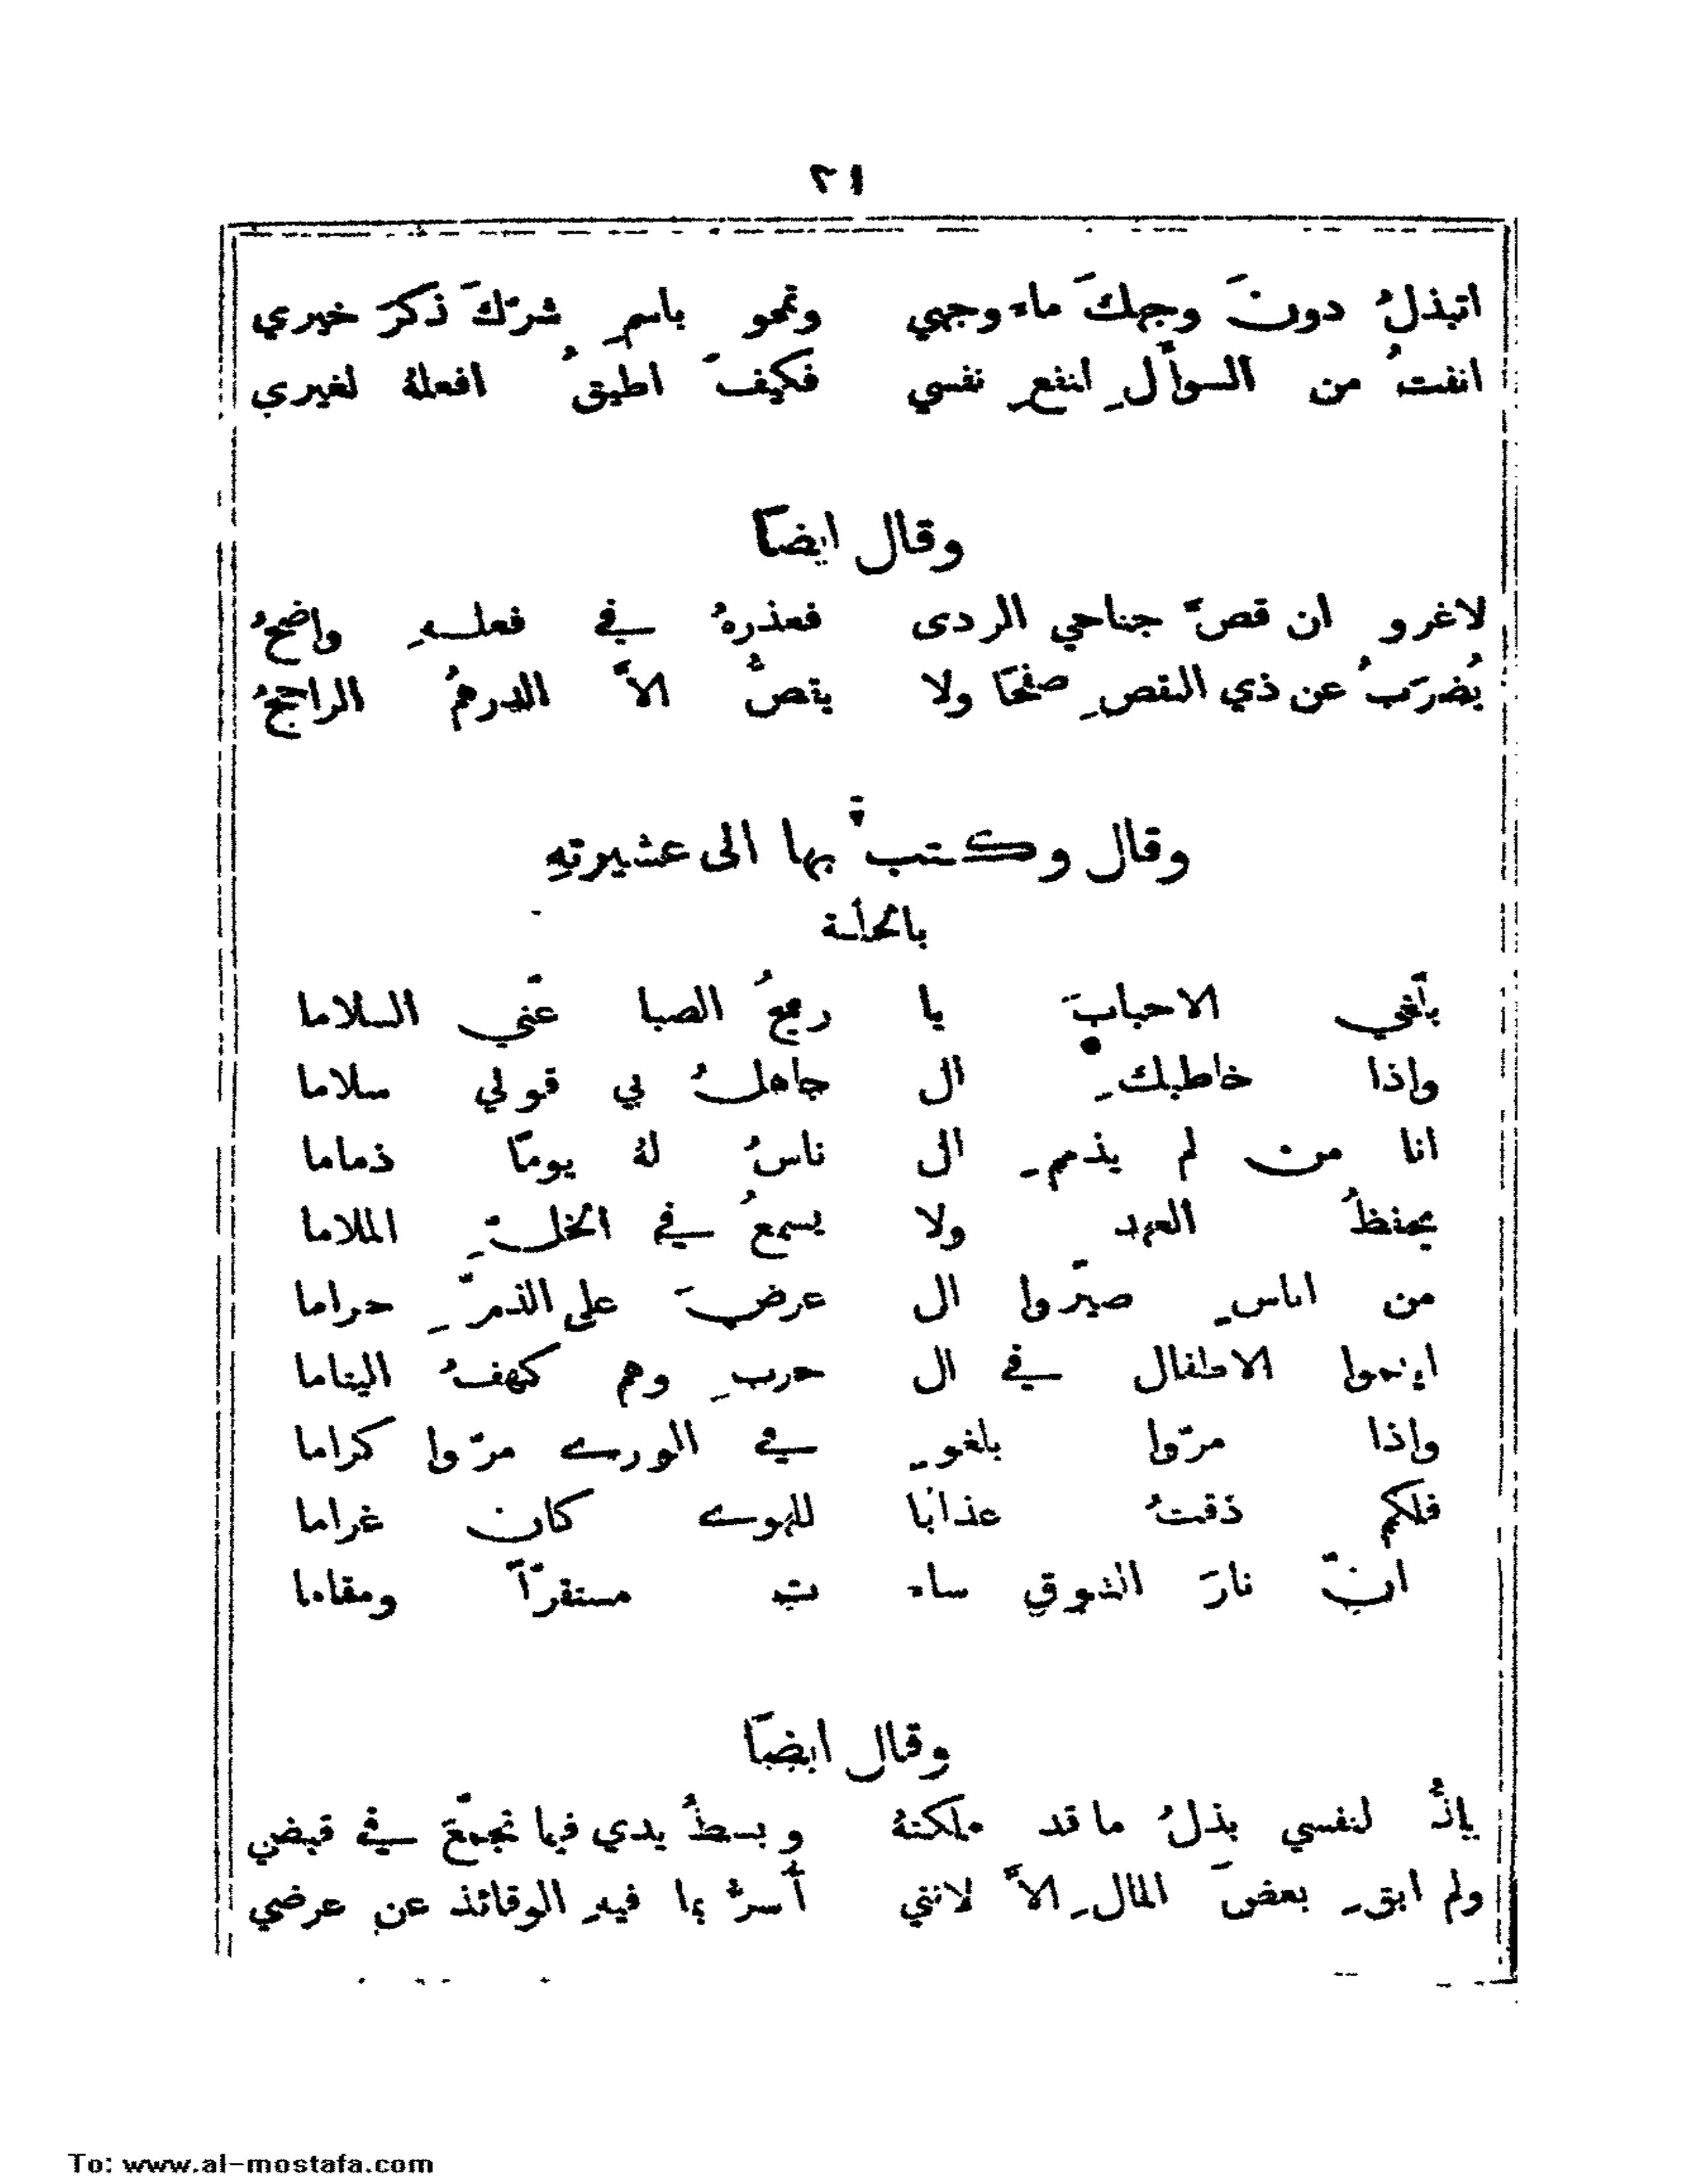 ٢١
اتبذلُ دونَ وجهكَ ماء وجهي وتمحو باسمِ شرّكَ ذكرَ خيري
انفتُ من السوآلِ لنفعِ نفسي فكيفَ اطيقُ افعلهُ لغيري
وقال ايضاً
لاغرو ان قصّ جناحي الردى فعذرهُ في فعلـهِ واضحُ
يُضرَبُ عن ذي النقصِ صفحًا ولا يقصُّ الاَّ الدرهمُ الراجحُ
وقال وكتب بها الى عشيرتهِ
بالحلة
بلّغي الاحبابَ يا ريحُ الصبا عنّي السلاما
واذا خاطبكِ ال جاهلُ بي قولي سلاما
انا من لم يذممِ ال ناسُ لهُ يومًا ذماما
يحفظُ العهد ولا يسمعُ في الخلّـةِ الملاما
من اناسٍ صيّروا ال عرضَ على الذمّ حراما
ايتموا الاطفال في ال حربِ وهم كهفُ اليتاما
واذا مرّوا بلغوٍ في الورى مرّوا كراما
فلكم ذقتُ عذابًا للهوى كان غراما
انّ نارَ الشوق ساء ت مستقرّاً ومقاما
وقال ايضاً
يلذُّ لنفسي بذلُ ما قد ملكتهُ وبسطُ يدي فيما تجمّعَ في قبضي
ولم ابقِ بعضَ المالِ الاَّ لانني أُسرُّ بما فيهِ الوقائذ عن عرضي
To: www.al-mostafa.com